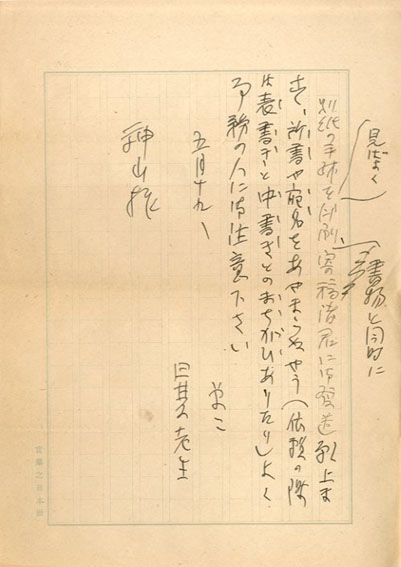 見ばよく
書物と同時に
別紙の手紙を印刷、寄稿諸君に御発送願上ま
す、所書や宛名をあやまらぬやう(依頼の際
は表書きと中書きとのまちがひありたり)よく
事務の人に御注意下さい
草々
五月十九、
老生
神山様
實業之日本社